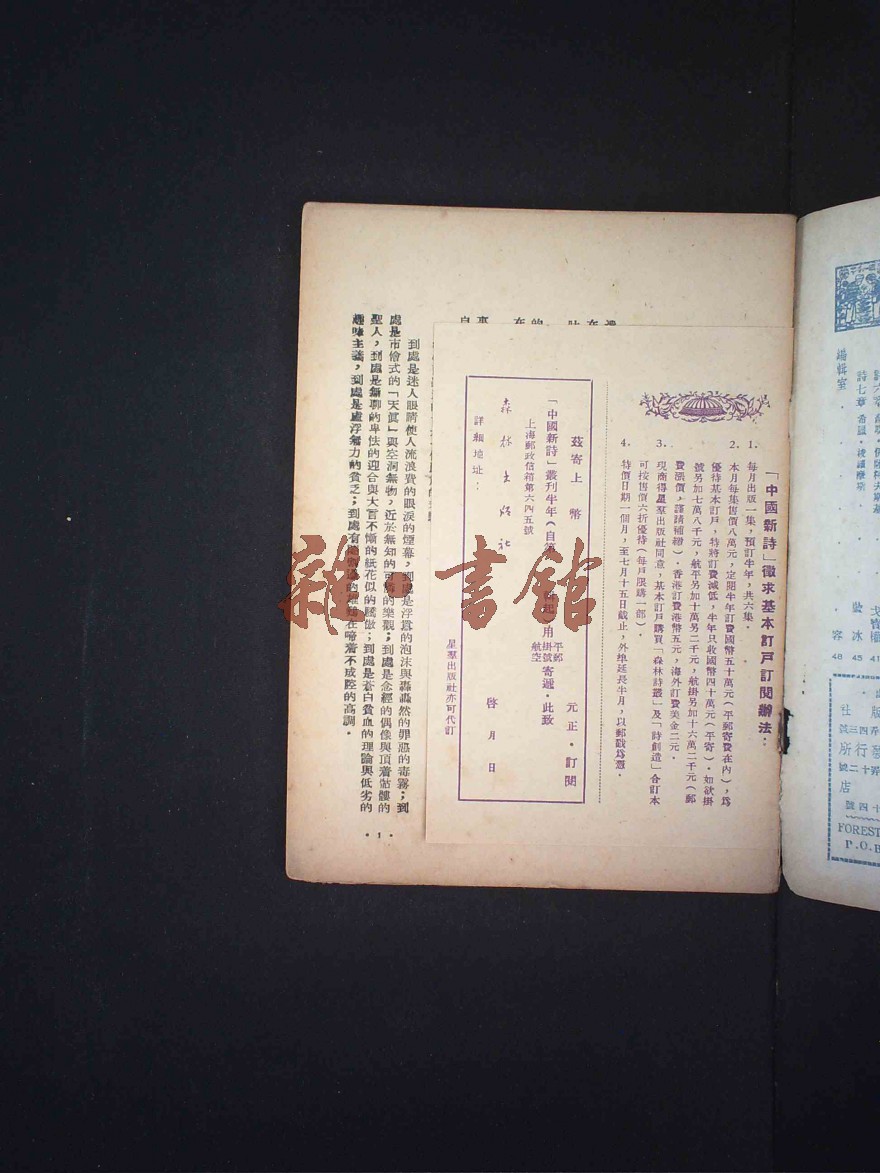 「中國新詩」徵求基本訂戶訂閱辦法：
1. 每月出版一集，預訂半年，共六集。
2. 本月每集售價八萬元，定閱半年訂費國幣五十萬元（平郵寄費在內），爲
優待基本訂戶，特將訂費減低，半年只收國幣四十萬元（平寄）。如欲掛
號另加七萬八千元，航平另加十萬另二千元，航掛另加十六萬二千元（郵
費漲價，謹請補繳）。香港訂費港幣五元，海外訂費美金二元。
3. 現商得星羣出版社同意，基本訂戶購買「森林詩叢」及「詩創造」合訂本
可按售價六折優待（每戶限購一部）。
4. 特價日期一個月，至七月十五日截止，外埠延長半月，以郵戳爲憑。
茲寄上幣 元正。訂閱
「中國新詩」叢刊半年（自第 起）用 平郵 掛號 航空 寄遞。此致
上海郵政信箱第六四五號
森林出版社
啓 月 日
詳細地址：
星羣出版社亦可代訂
到處是迷人眼睛使人流浪費的眼淚的煙幕，到處是浮囂的泡沫與轟轟然的罪惡的毒霧；到
處是市儈式的「天眞」與空洞無物，近於無知的可 的樂觀；到處是念經的偶像與頂着骷髏的
聖人，到處是無聊的卑怯的迎合與大言不慚的紙花似的驕傲；到處是蒼白貧血的理論與低劣的
趣味主義，到處是虛浮無力的貧乏；到處有 在啼着不成腔的高調。
·1·
雜書館
編輯室
容
48
45
41
FOREST
P.O.B